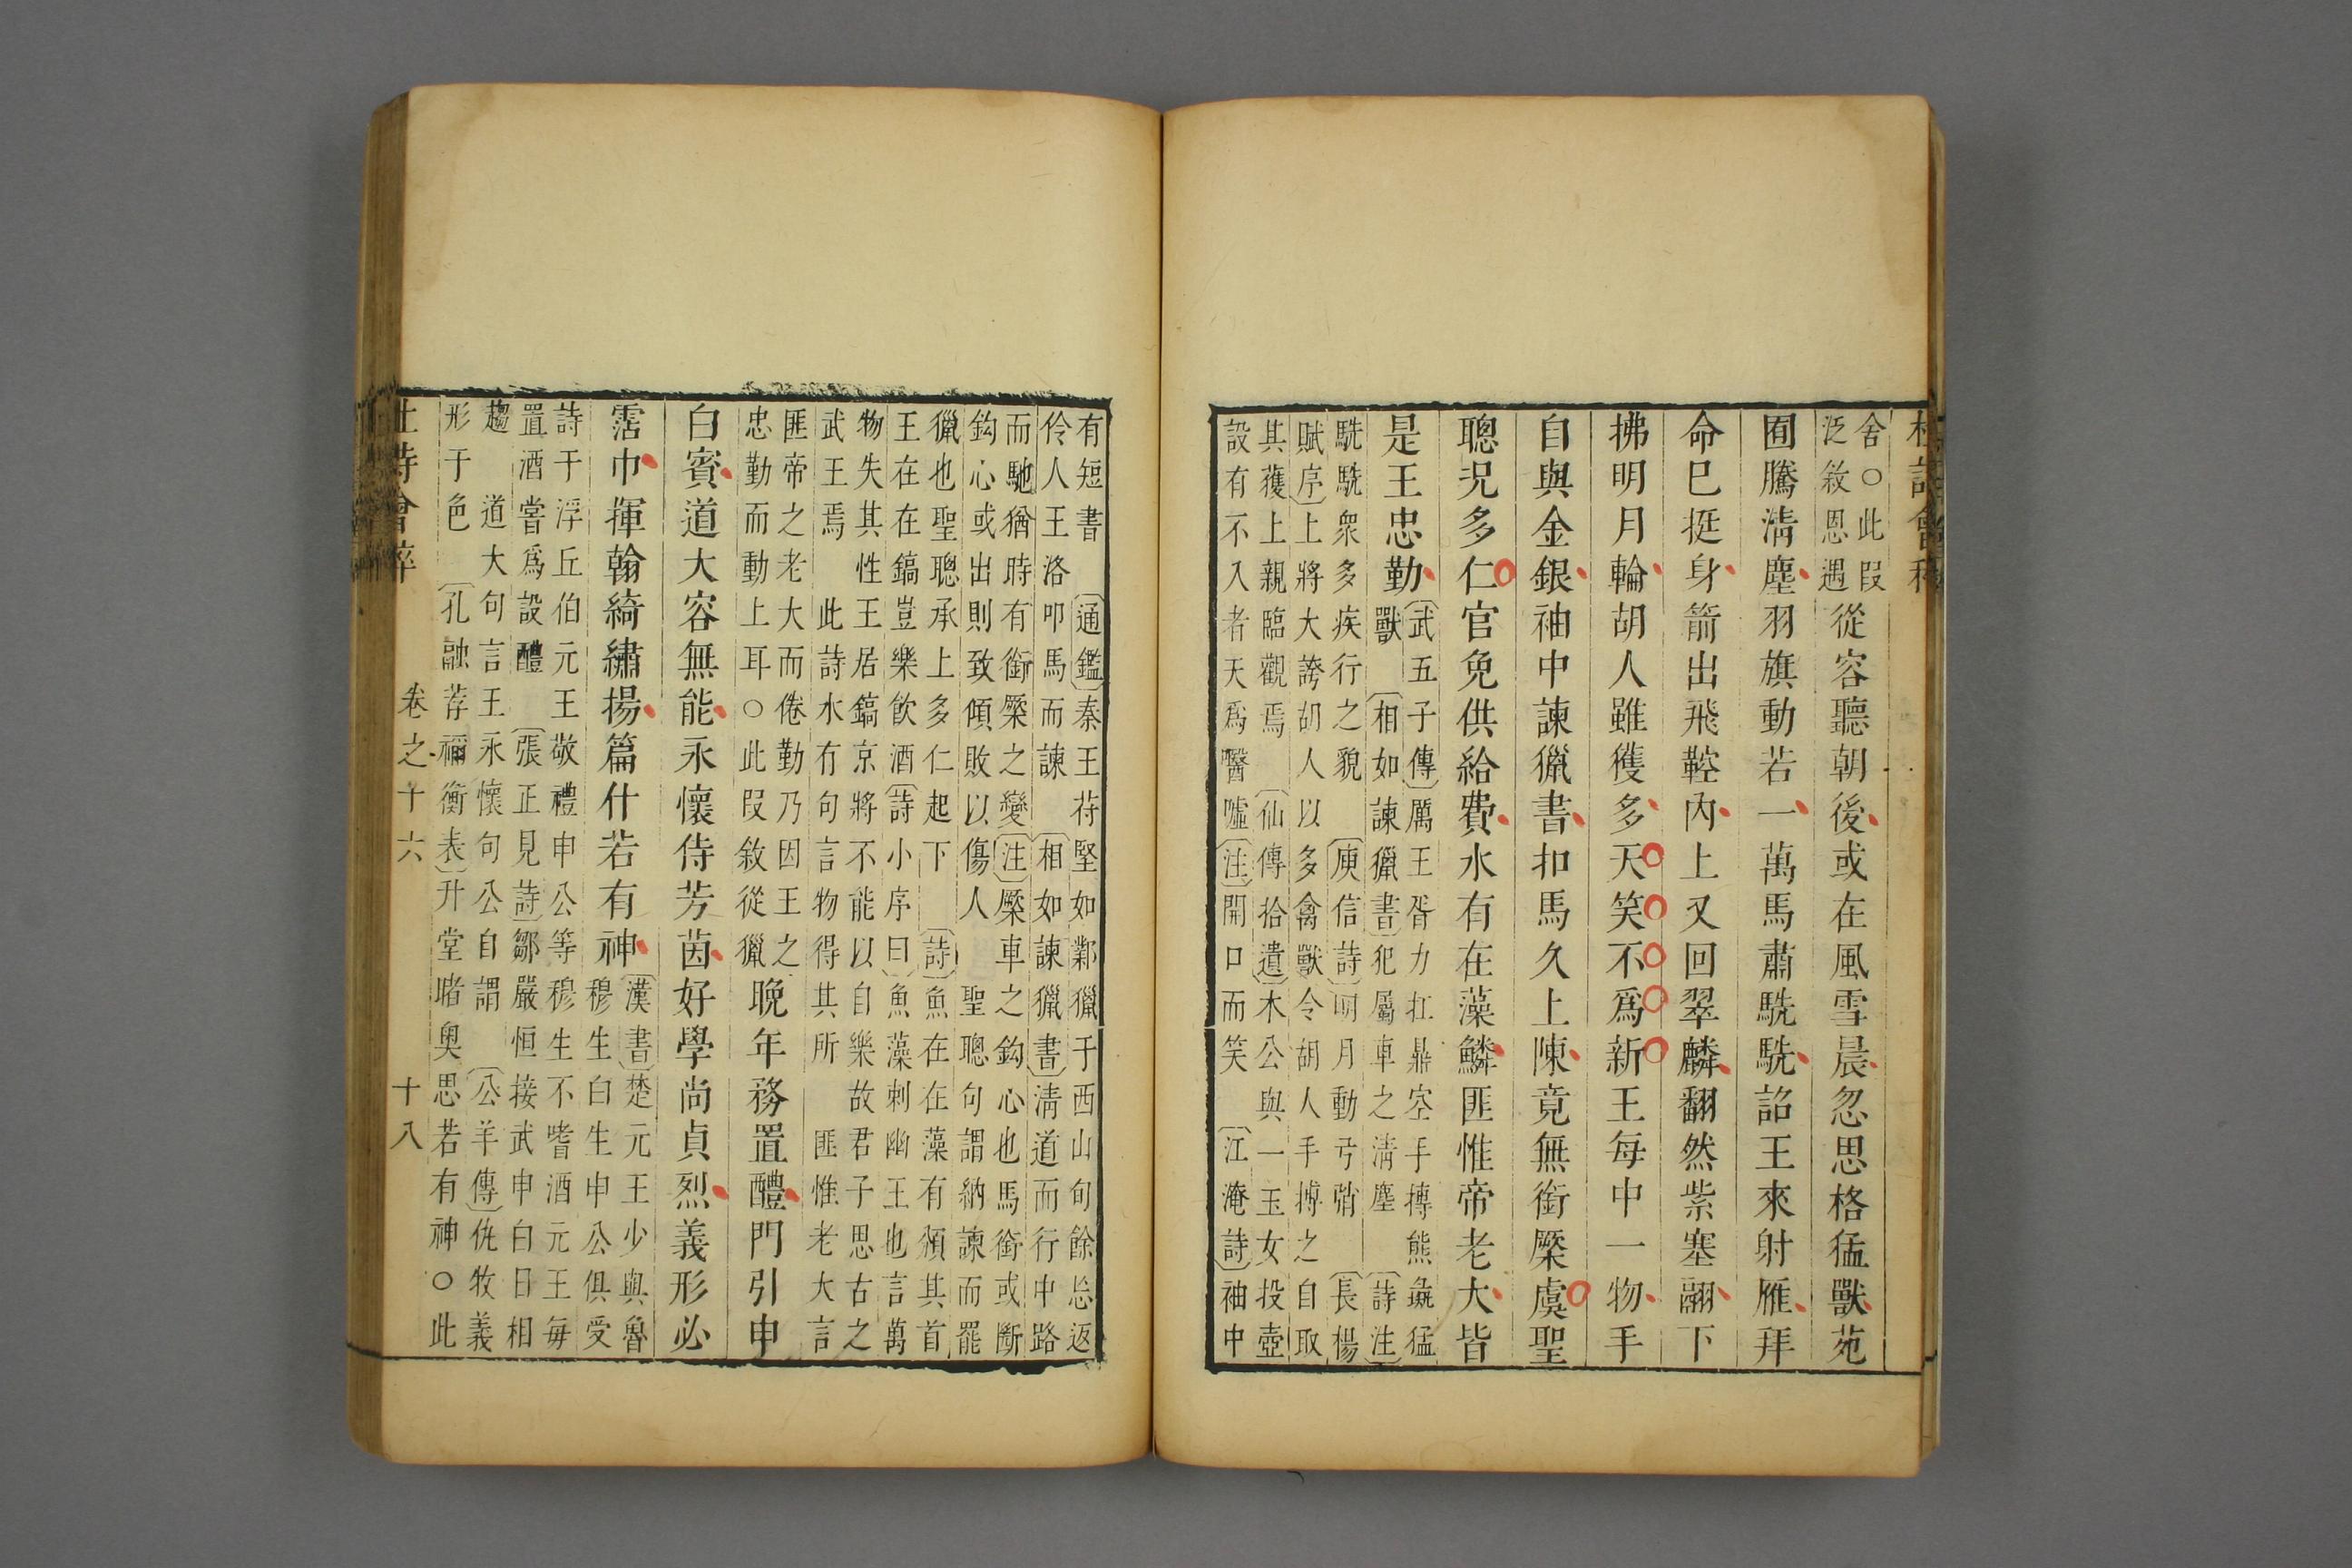 舍○此叚
泛敘恩遇
從容聽朝後或在風雪晨忽思格猛獸苑
囿騰淸塵羽旗動若一萬馬肅駪駪詔王來射雁拜
命巳挺身箭出飛鞚內上又回翠麟翻然紫塞翮下
拂明月輪胡人雖獲多天笑不爲新王每中一物手
自與金銀袖中諫獵書扣馬久上陳竟無銜橜虞聖
聰况多仁官免供給費水有在藻鱗匪惟帝老大皆
是王忠勤
武五子傳厲王胥力扛鼎空手搏熊彘猛
獸 相如諫獵書犯屬車之淸塵 詩注
駪駪衆多疾行之貌 庾信詩明月動弓弰 長楊
賦序上將大誇胡人以多禽獸令胡人手搏之自取
其獲上親臨觀焉 仙傳拾遺木公與一玉女投壺
設有不入者天爲醫噓注開口而笑 江淹詩袖中
有短書 通鑑秦王苻堅如鄴獵于西山旬餘忘返
伶人王洛叩馬而諫 相如諫獵書淸道而行中路
而馳猶時有銜橜之變注橜車之鈎心也馬銜或斷
鈎心或出則致傾敗以傷人 聖聰句謂納諫而罷
獵也聖聰承上多仁起下 詩魚在在藻有頒其首
王在在鎬豈樂飲酒詩小序曰魚藻刺幽王也言萬
物失其性王居鎬京將不能以自樂故君子思古之
武王焉 此詩水有句言物得其所 匪惟老大言
匪帝之老大而倦勤乃因王之
忠勤而動上耳○此叚敘從獵
晚年務置醴門引申
白賓道大容無能永懷侍芳茵好學尚貞烈義形必
霑巾揮翰綺繡揚篇什若有神
漢書楚元王少與魯
穆生白生申公俱受
詩于浮丘伯元王敬禮申公等穆生不嗜酒元王每
置酒嘗爲設醴 張正見詩鄒嚴恒接武申白日相
趨 道大句言王永懷句公自謂 公羊傳仇牧義
形于色 孔融荐禰衡表升堂睹奧思若有神○此
卷之十六
十八